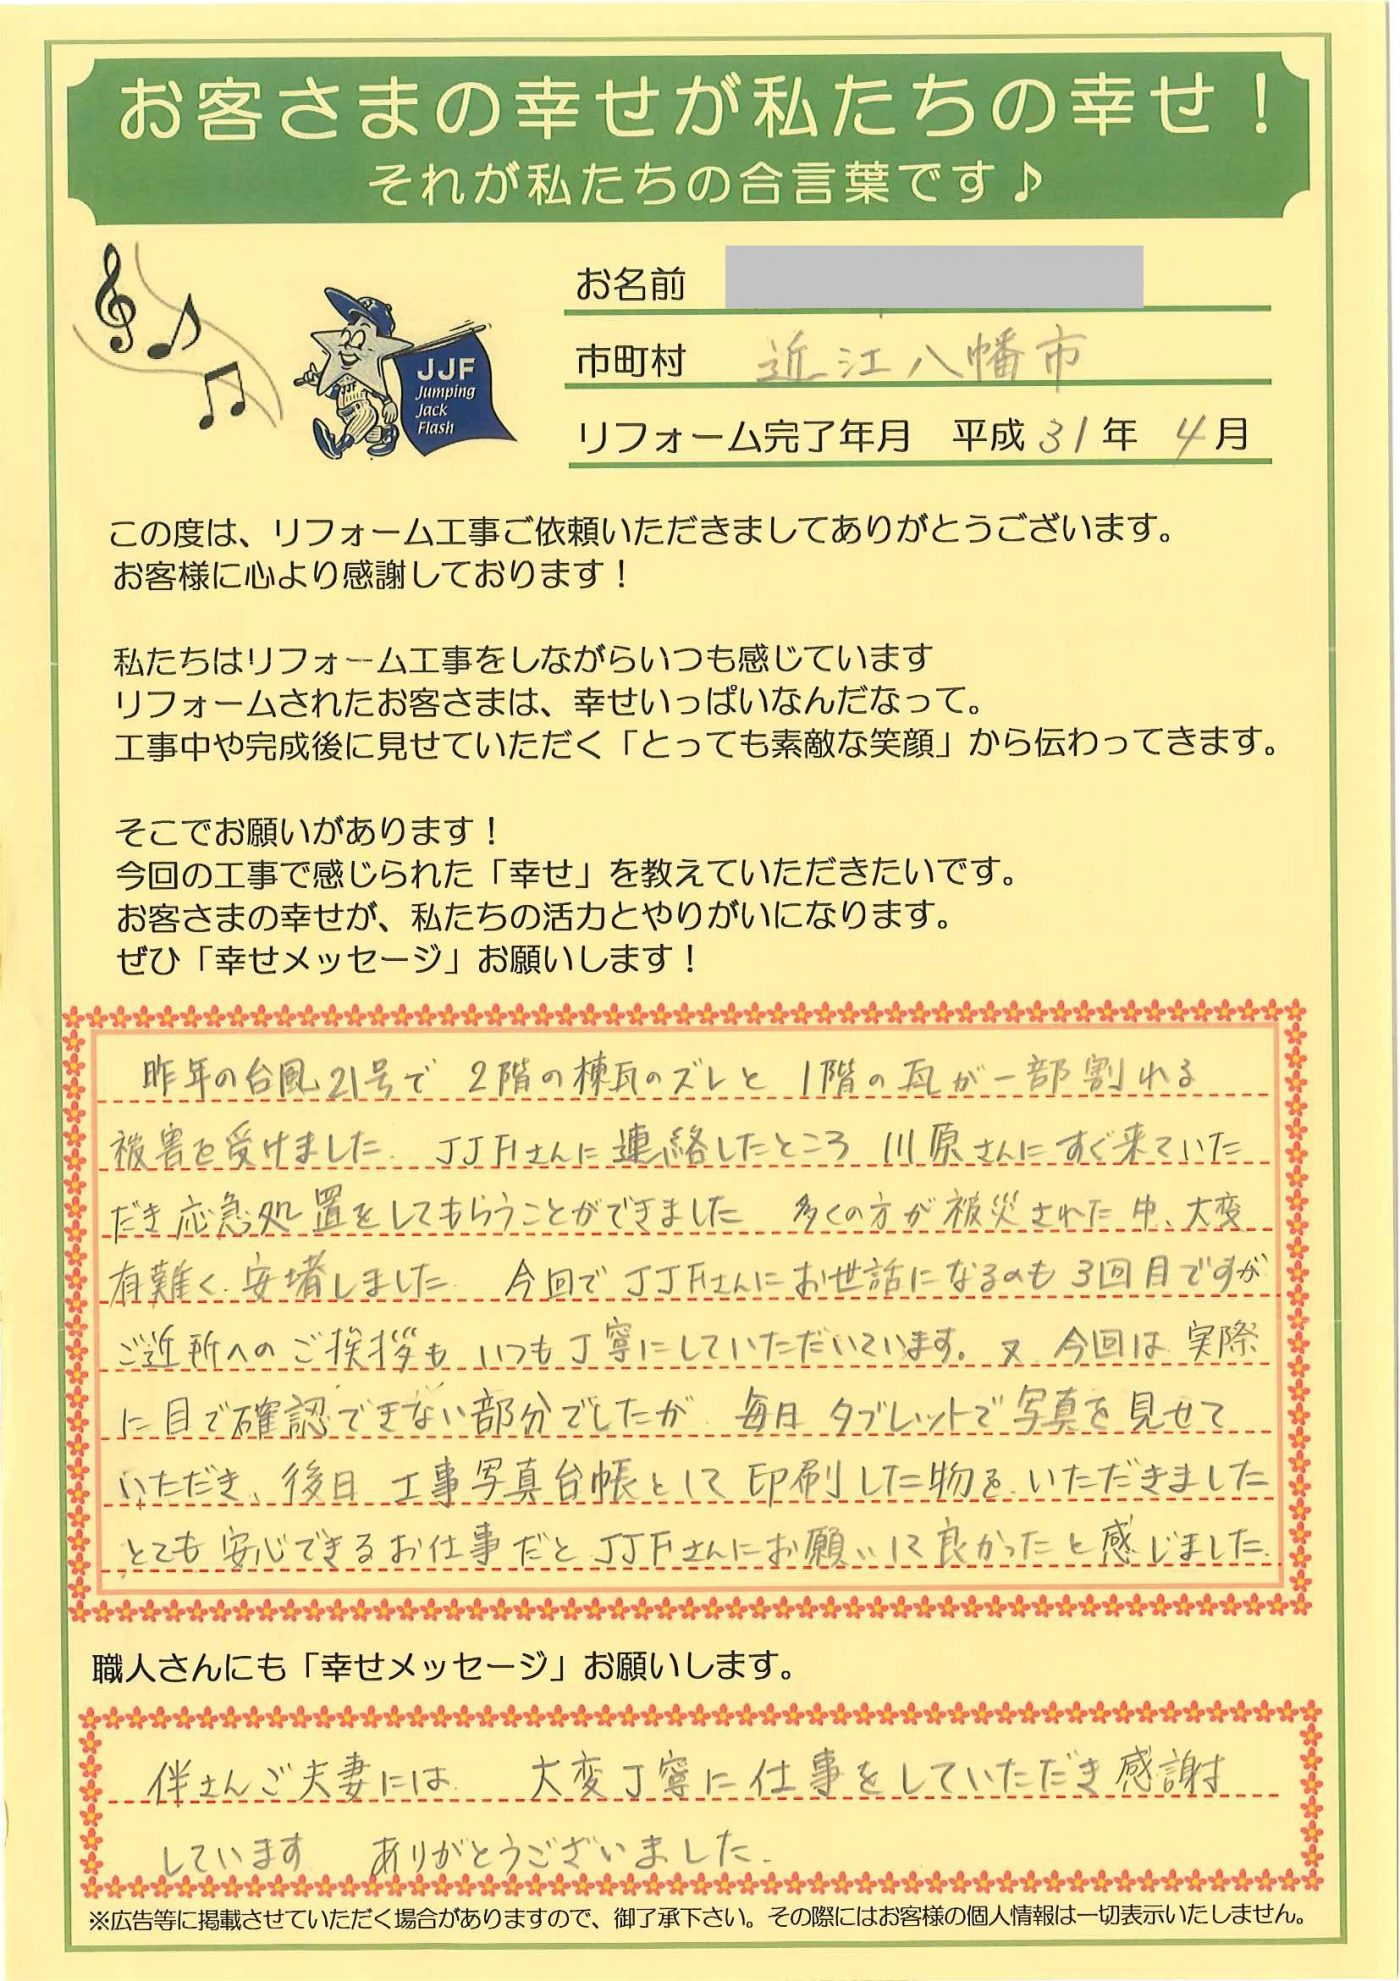 お客さまの幸せが私たちの幸せ！
それが私たちの合言葉です♪
お名前
JJF
Jumping
Jack
Flash
市町村 近江八幡市
リフォーム完了年月 平成31年 4月
この度は、リフォーム工事ご依頼いただきましてありがとうございます。
お客様に心より感謝しております！
私たちはリフォーム工事をしながらいつも感じています
リフォームされたお客さまは、幸せいっぱいなんだなって。
工事中や完成後に見せていただく「とっても素敵な笑顔」から伝わってきます。
そこでお願いがあります！
今回の工事で感じられた「幸せ」を教えていただきたいです。
お客さまの幸せが、私たちの活力とやりがいになります。
ぜひ「幸せメッセージ」お願いします！
昨年の台風21号で 2階の棟瓦のズレと 1階の瓦が一部割れる
被害を受けました。JJFさんに連絡したところ 川原さんにすぐ来ていた
だき応急処置をしてもらうことができました 多くの方が被災された中、大変
有難く、安堵しました。 今回でJJFさんにお世話になるのも3回目ですが
ご近所へのご挨拶も いつも丁寧にしていただいています。又 今回は 実際
に目で確認できない部分でしたが、毎日 タブレットで写真を見せて
いただき、後日 工事写真台帳として印刷した物を、いただきました
とても安心できるお仕事だとJJFさんにお願いして良かったと感じました。
職人さんにも「幸せメッセージ」お願いします。
伴さんご夫妻には、 大変丁寧に仕事をしていただき感謝
しています ありがとうございました。
※広告等に掲載させていただく場合がありますので、御了承下さい。その際にはお客様の個人情報は一切表示いたしません。